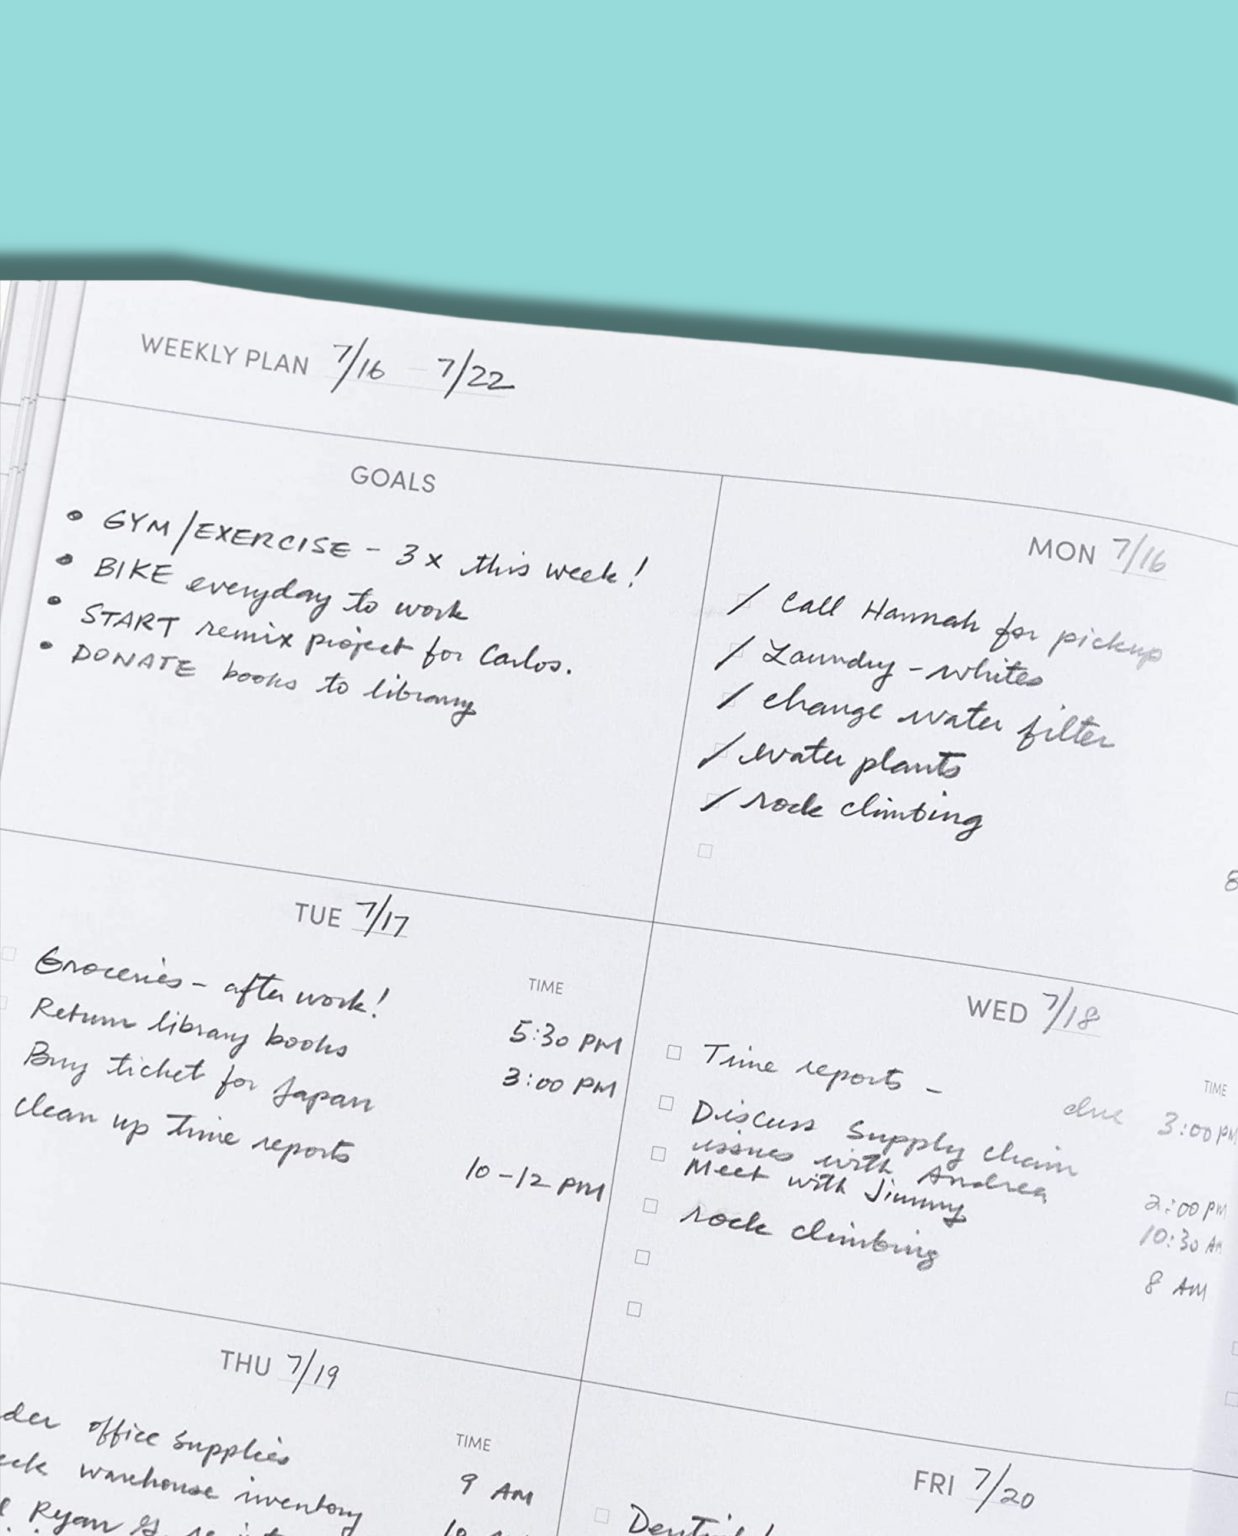 WEEKLY PLAN 7/16 - 7/22
GOALS
• GYM/EXERCISE - 3x this week!
• BIKE everyday to work
• START remix project for Carlos.
• DONATE books to library
MON 7/16
/ Call Hannah for pickup
/ Laundry - whites
/ change water filter
/ water plants
/ rock climbing
8
TUE 7/17
TIME
Groceries - after work! 5:30 PM
Return library books 3:00 PM
Buy ticket for Japan
clean up time reports 10-12 PM
WED 7/18
TIME
Time reports - due 3:00 PM
Discuss supply chain
issues with Andrea 2:00 PM
Meet with Jimmy 10:30 AM
rock climbing 8 AM
THU 7/19
TIME
office supplies 9 AM
warehouse inventory
Ryan G.
FRI 7/20
Dentist!